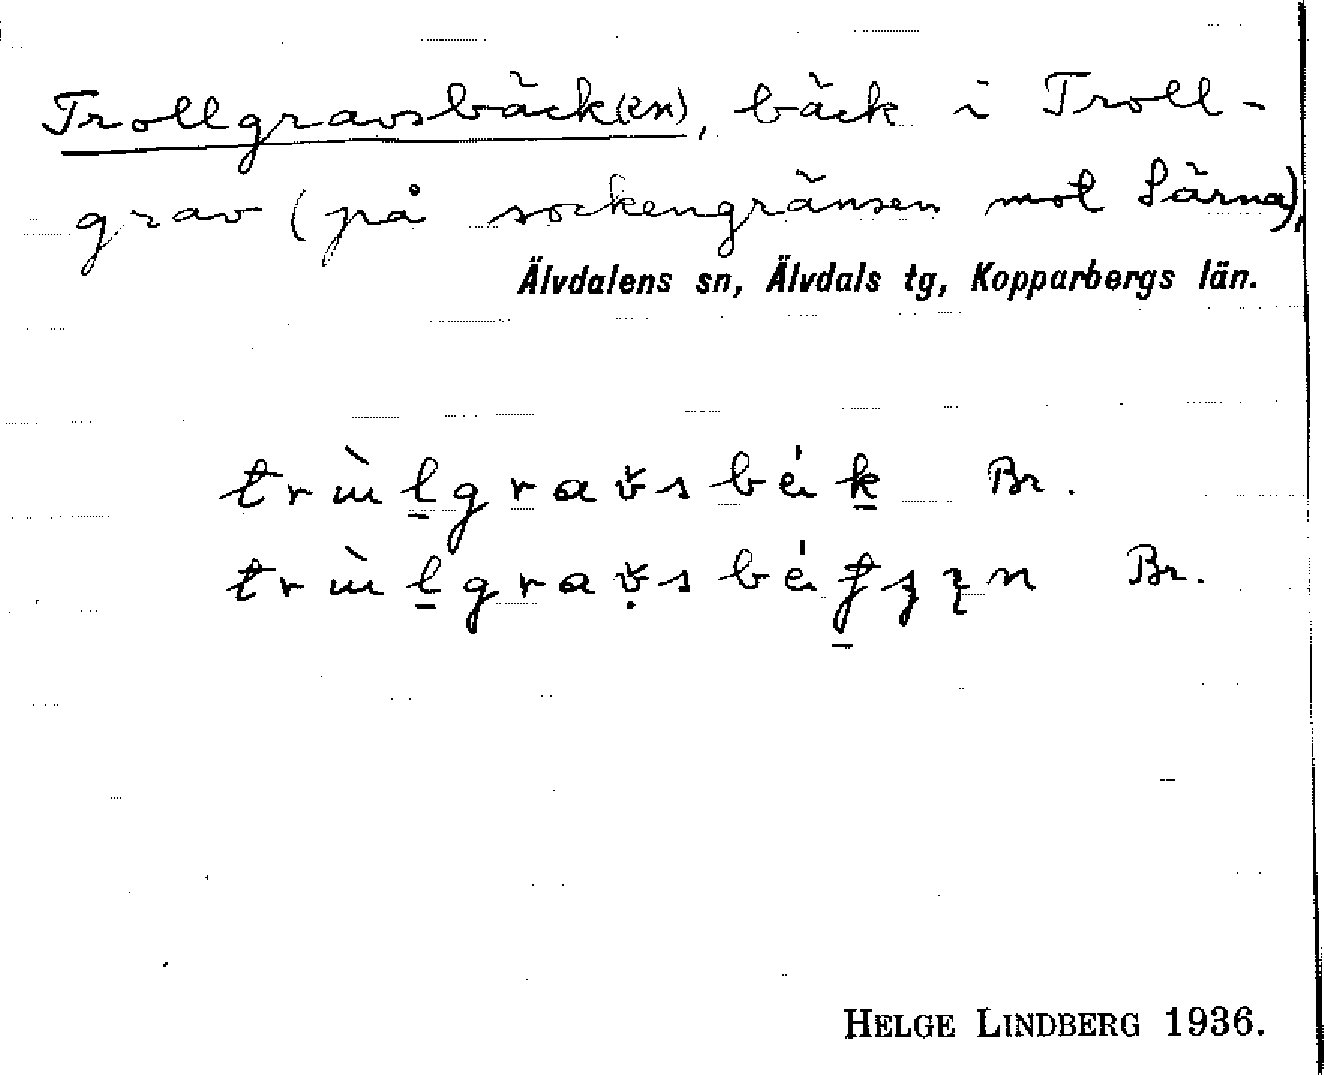 Trollgravsbäck(en), bäck i Troll-
grav (på sockengränsen mot Särna),
Älvdalens sn, Älvdals tg, Kopparbergs län.
Br.
Br.
HELGE LINDBERG 1936.